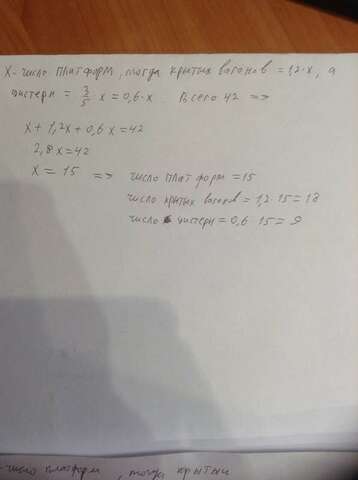 X - число платформ, тогда крытых вагонов = 1,2·x, а
цистерн = 3/5 · x = 0,6·x. Всего 42 =>
x + 1,2x + 0,6x = 42
2,8x = 42
x = 15 => число платформ = 15
число крытых вагонов = 1,2·15 = 18
число цистерн = 0,6·15 = 9
число платформ, тогда крытых